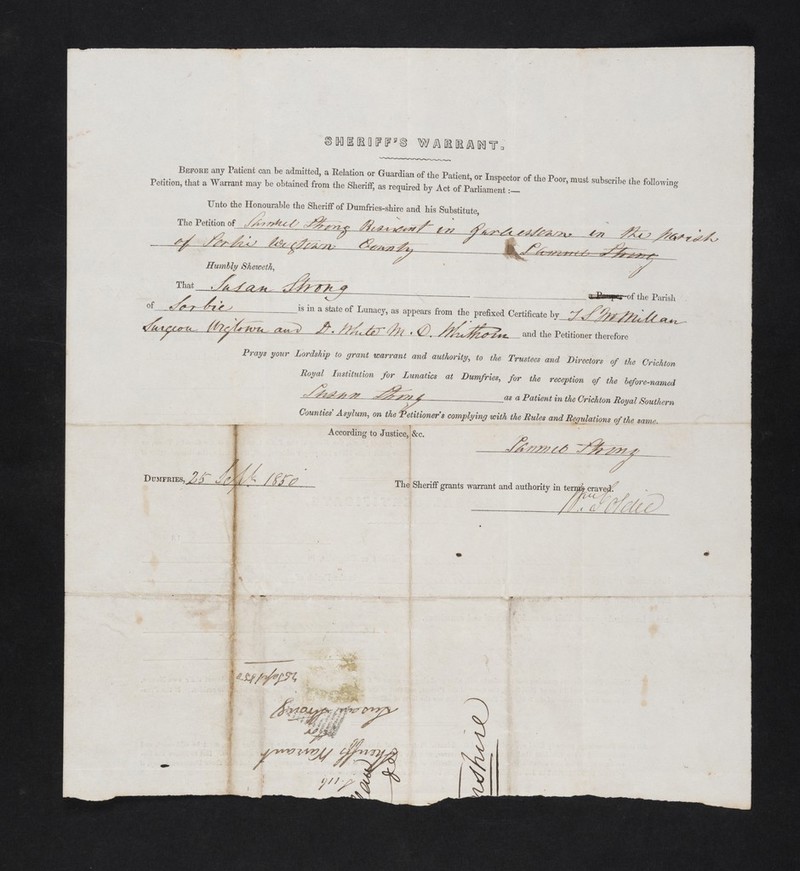 SHERIFF'S WARRANT.
BEFORE any Patient can be admitted, a Relation or Guardian of the Patient, or Inspector of the Poor, must subscribe the following
Petition, that a Warrant may be obtained from the Sheriff, as required by Act of Parliament :—
Unto the Honourable the Sheriff of Dumfries-shire and his Substitute,
The Petition of Samuel Strong Resident in Garliestown in the Parish
of Sorbie Wigtown County Samuel Strong
Humbly Sheweth,
That Susan Strong a Pauper of the Parish
of Sorbie is in a state of Lunacy, as appears from the prefixed Certificate by McMillan
Surgeon Wigtown and D. White M.D. Whithorn and the Petitioner therefore
Prays your Lordship to grant warrant and authority, to the Trustees and Directors of the Crichton
Royal Institution for Lunatics at Dumfries, for the reception of the before-named
Susan Strong as a Patient in the Crichton Royal Southern
Counties' Asylum, on the Petitioner's complying with the Rules and Regulations of the same.
According to Justice, &c.
Samuel Strong
DUMFRIES, 25 Sept 1850
The Sheriff grants warrant and authority in terms craved.
25 Sept 1850
Susan Strong
for
Sheriffs Warrant
nshire